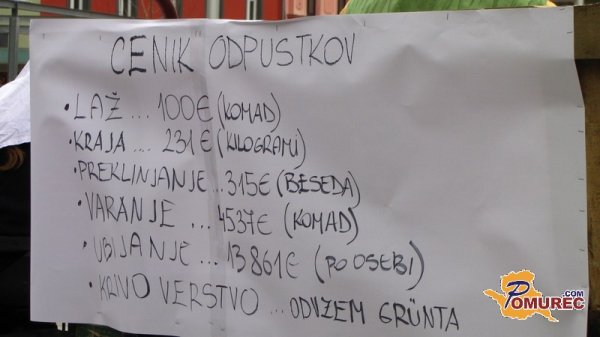 CENIK ODPUSTKOV
• LAŽ ... 100€ (KOMAD)
• KRAJA .... 231€ (KILOGRAMI)
• PREKLINJANJE ... 315€ (BESEDA)
• VARANJE ... 4537€ (KOMAD)
• UBIJANJE ... 13861€ (PO OSEBI)
• KRIVO VERSTVO ... ODVZEM GRÜNTA
POMUREC.COM